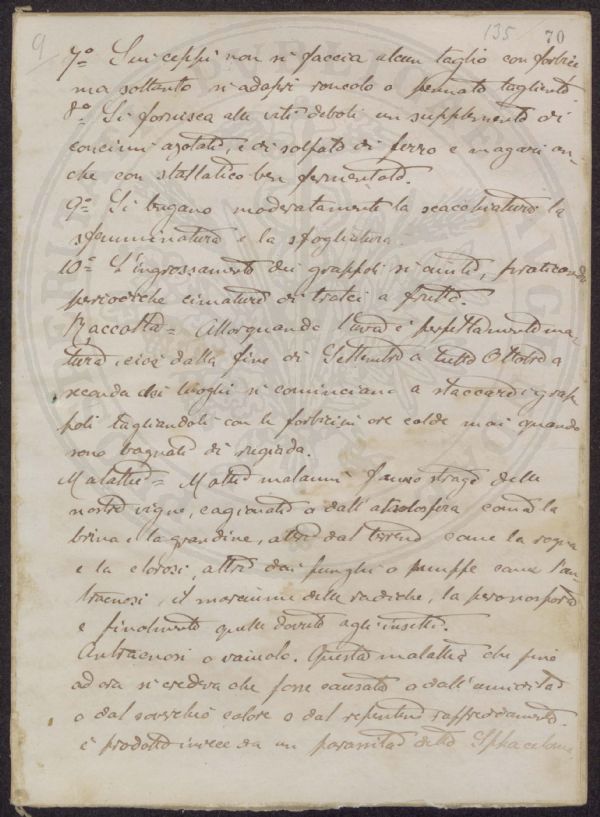 9 135 70
7º Sui ceppi non si faccia alcun taglio con forbici
ma soltanto si adopri roncolo o pennato tagliente.
8º Si fornisca alle viti deboli un supplemento di
concimi azotati, e di solfato di ferro e magari an-
che con stallatico ben fermentato.
9º Si tengano moderatamente la scacchiatura la
sfemminatura e la sfogliatura.
10º L'ingrossamento dei grappoli si aiuta, praticando
periodiche cimature di tralci a frutto.
Raccolta = Allorquando l'uva è perfettamente ma-
tura, cioè dalla fine di Settembre a tutto Ottobre a
seconda dei luoghi si cominciano a staccare i grap-
poli tagliandoli con le forbicine ore calde mai quando
sono bagnati di rugiada.
Malattie = Molti malanni fanno strage delle
nostre vigne, cagionati o dall'atmosfera come la
brina e la grandine, altri dal terreno come la
e la clorosi, altri dei funghi o muffe come l'an-
tracnosi, il marciume delle radiche, la peronospora
e finalmente quelle dovute agli insetti.
Antracnosi o vaiuolo. Questa malattia che fino
ad ora si credeva che fosse causata o dall'umidità
o dal soverchio calore o dal repentino raffreddamento
è prodotta invece da un parassita detto Sphaceloma